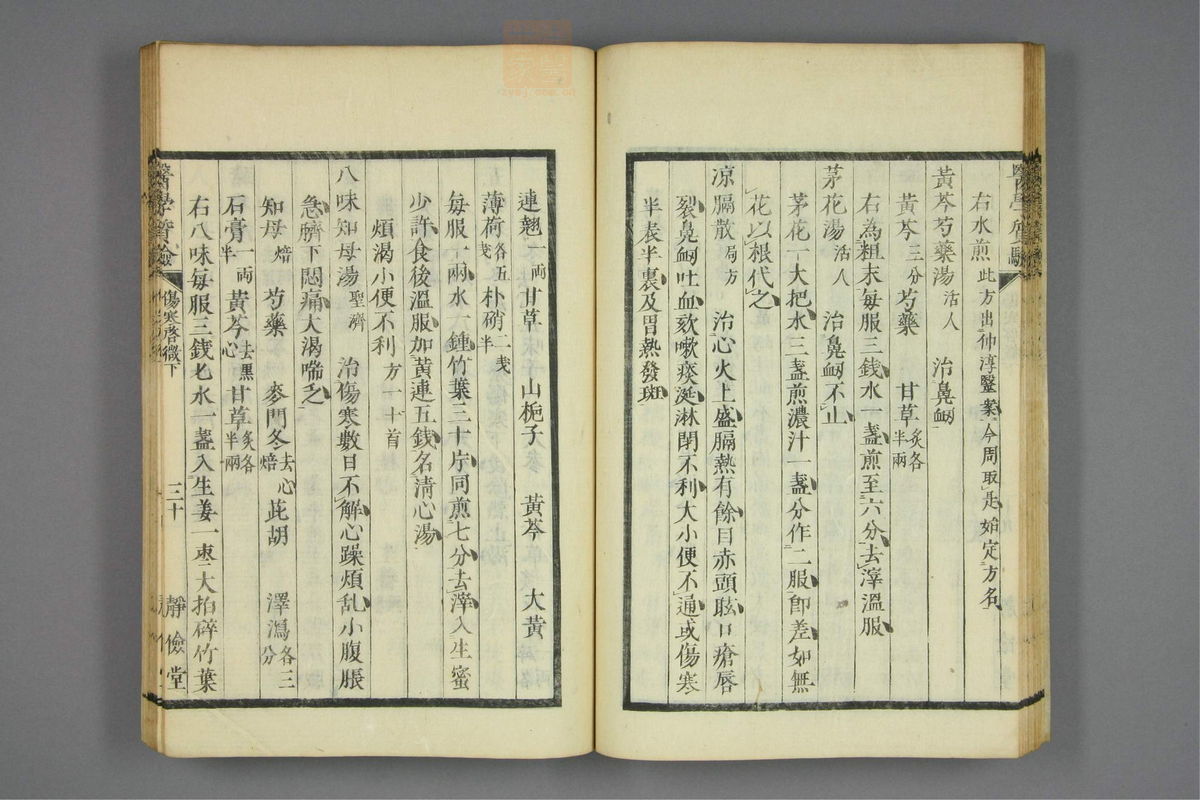 右水煎此方出仲淳醫案今周取是始定方名
黃芩芍藥湯活人　治鼻衂
黃芩三分芍藥　甘草炙各半兩
右為粗末每服三錢水一盞煎至六分去滓溫服
茅花湯活人　治鼻衂不止
茅花一大把水三盞煎濃汁一盞分作二服卽差如無
花以根代之
涼膈散局方　治心火上盛膈熱有餘目赤頭眩口瘡唇
裂鼻衂吐血欬嗽痰涎淋閉不利大小便不通或傷寒
半表半裏及胃熱發斑
連翹一兩甘草　山梔子　黃芩　大黃
薄荷各五戔朴硝二戔半
每服一兩水一鍾竹葉三十片同煎七分去滓入生蜜
少許食後溫服加黃連五錢名清心湯
煩渴小便不利方一十首
八味知母湯聖濟　治傷寒數日不解心躁煩乱小腹脹
急臍下悶痛大渴喘乏
知母焙　芍藥　麥門冬去心焙　茈胡　澤瀉各三分
石膏一兩半黃芩去黑心甘草炙各半兩
右八味每服三錢匕水一盞入生姜一棗大拍碎竹葉
醫學實驗　傷寒啓微下　三十　靜儉堂